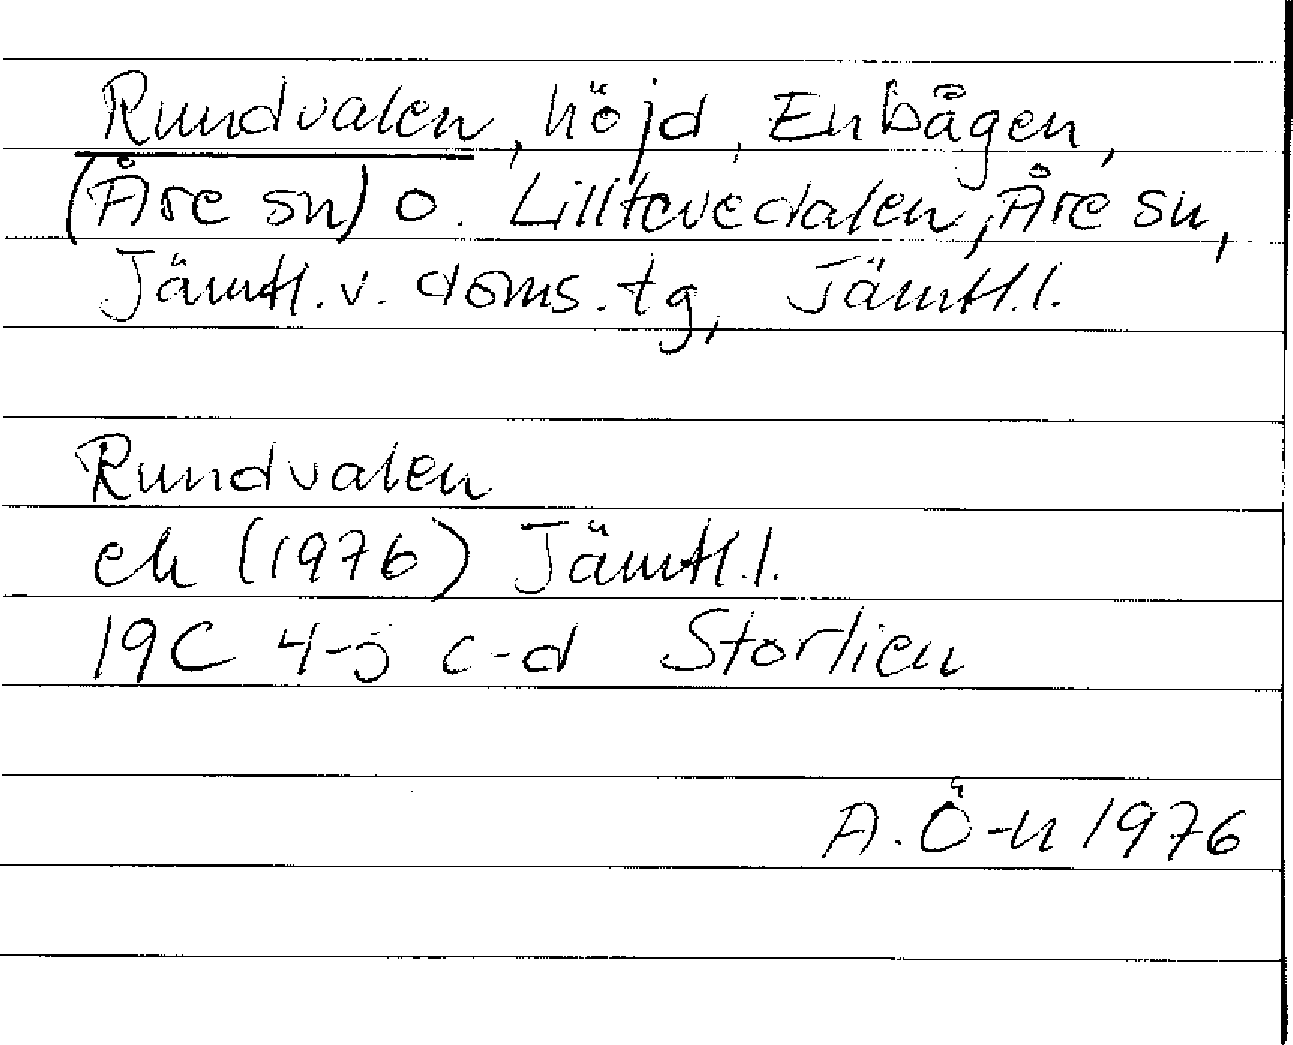 Rundvalen, höjd, Enbågen,
(Åre sn) o. Lilltevedalen, Åre sn,
Jämtl. v. doms. tg, Jämtl. l.
Rundvalen
ek (1976) Jämtl. l.
19C 4-j c-d Storlien
A. Ö-n 1976